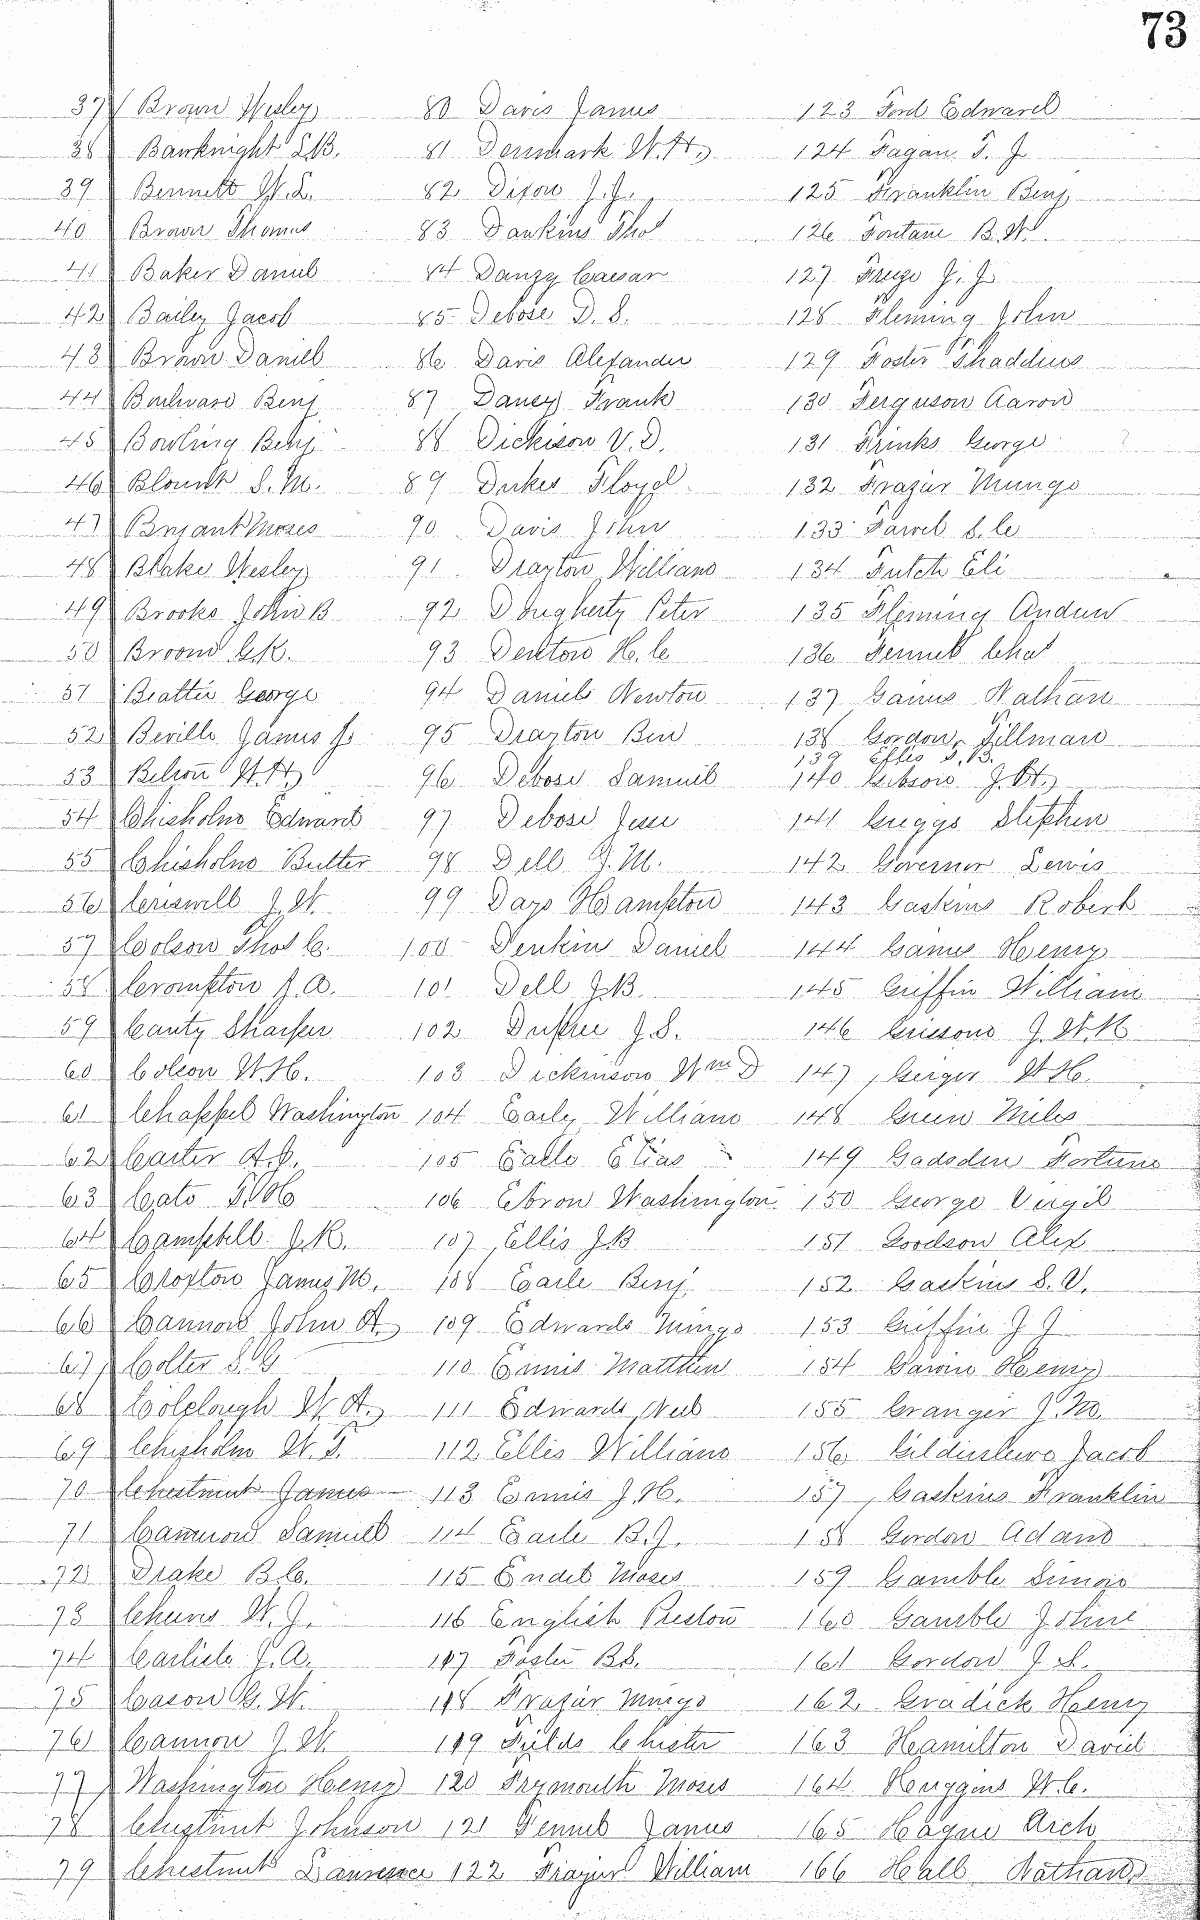 73
37 Brown Wesley
38 Bawknight L.B.
39 Bennett W.L.
40 Brown Thomas
41 Baker Daniel
42 Bailey Jacob
43 Brown Daniel
44 Boulward Benj
45 Bowling Benj
46 Blount S.M.
47 Bryant Moses
48 Blake Wesley
49 Brooks John B
50 Broom G.R.
51 Beattie George
52 Beville James Jr
53 Belton W.H.
54 Chisholm Edward
55 Chisholm Butler
56 Criswell J.W.
57 Colson Thos C.
58 Crompton J.A.
59 Canty Sharper
60 Colson W.H.
61 Chappel Washington
62 Carter A.J.
63 Cato T.H.
64 Campbell J.R.
65 Croxton James M.
66 Cannon John A.
67 Colter S.G
68 Colclough W.A.
69 Chisholm W.T.
70 Chestnut James
71 Cannon Samuel
72 Drake B.C.
73 Chewns W.J.
74 Carlisle J.A.
75 Cason G.W.
76 Cannon J.W.
77 Washington Henry
78 Chestnut Johnson
79 Chestnut Laurence
80 Davis James
81 Denmark W.H.
82 Dixon J.J.
83 Dawkins Thos
84 Danzy Caesar
85 Debose D.S.
86 Davis Alexander
87 Dancy Frank
88 Dickison V.D.
89 Dukes Floyd
90 Davis John
91 Drayton William
92 Dougherty Peter
93 Denton H.C
94 Daniels Newton
95 Drayton Ben
96 Debose Samuel
97 Debose Jesse
98 Dell J.M.
99 Days Hampton
100 Jenkins Daniel
101 Dell J.B
102 Dupree J.S.
103 Dickinson Wm D
104 Early William
105 Earle Elias
106 Ebron Washington
107 Ellis J.B
108 Earle Benj
109 Edwards Mingo
110 Ennis Matthew
111 Edwards Neel
112 Ellis William
113 Ennis J.H.
114 Earle B.J.
115 Endel Moses
116 English Preston
117 Foster B.S.
118 Frazier Mingo
119 Fields Chester
120 Frymouth Moses
121 Fennel James
122 Frazier William
123 Ford Edward
124 Fagan T. J
125 Franklin Benj
126 Fontane B.W.
127 Fruge J. J
128 Fleming John
129 Foster Thaddeus
130 Ferguson Aaron
131 Frinks George
132 Frazier Mungo
133 Farrel S.C
134 Futch Eli
135 Fleming Andrew
136 Fennel Chas
137 Gaines Nathan
138 Gordon Tillman
139 Ellis S.B.
140 Gibson J.H.
141 Griggs Stephen
142 Governor Lewis
143 Gaskins Robert
144 Gaines Henry
145 Griffin William
146 Grissom J.W.K
147 Geiger W.H.
148 Green Miles
149 Gadsden Fortune
150 George Virgil
151 Goodson Alex
152 Gaskins S.V.
153 Griffin J J
154 Gawin Henry
155 Granger J.M.
156 Gildersleeve Jacob
157 Gaskins Franklin
158 Gordon Adam
159 Gamble Simon
160 Gamble John
161 Gordon J.S.
162 Gradick Henry
163 Hamilton David
164 Huggins W.C.
165 Hague Arch
166 Hall Nathan